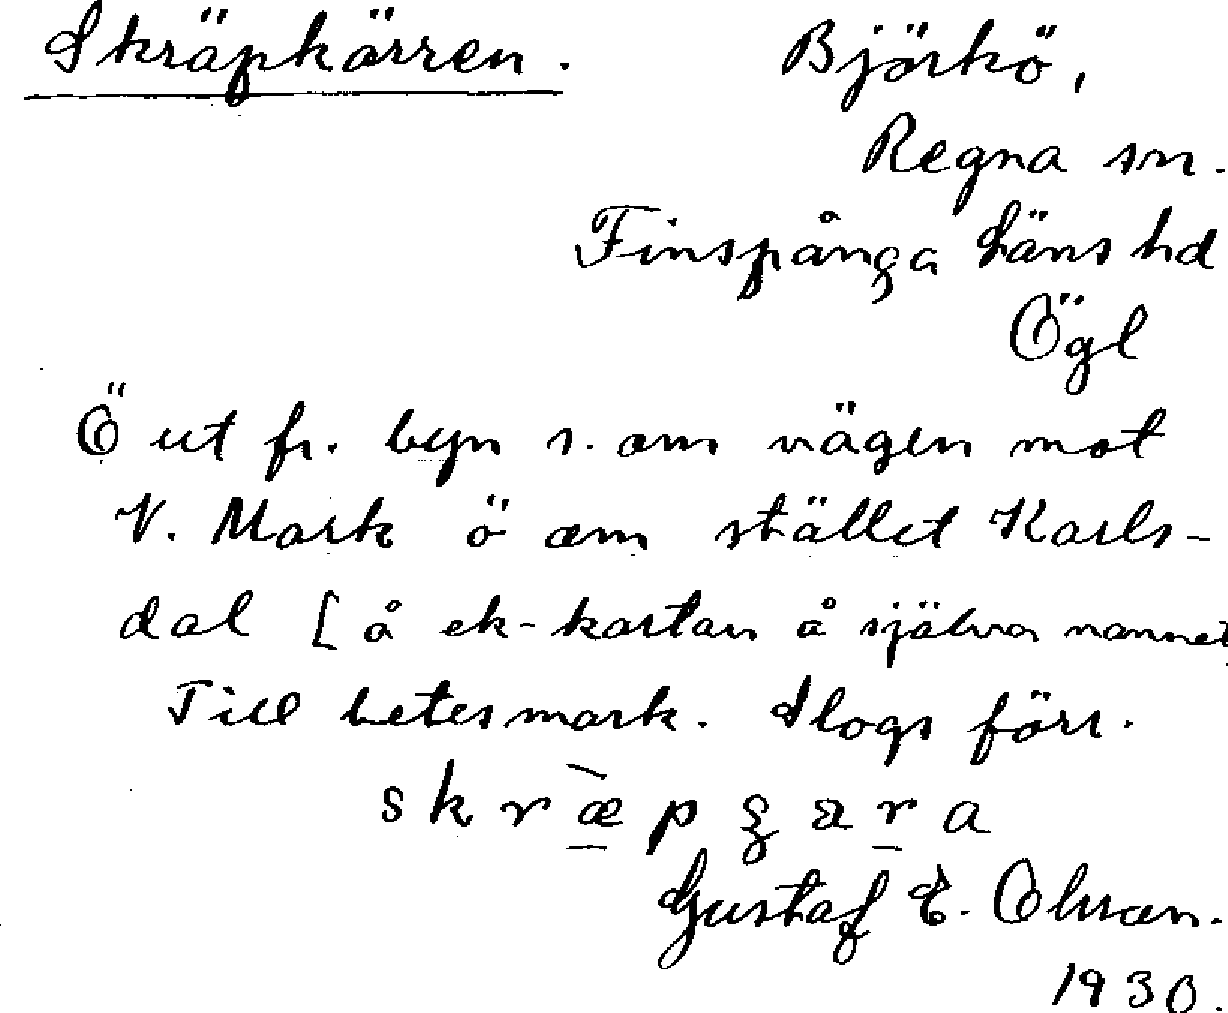 Skräpkärren. Björkö,
Regna sn.
Finspånga läns hd
Ögl
Ö ut fr. byn s. om vägen mot
V. Mark ö om stället Karls-
dal [å ek-kartan å själva namnet
Till betesmark. Slogs förr.
Gustaf E. Olsson.
1930.